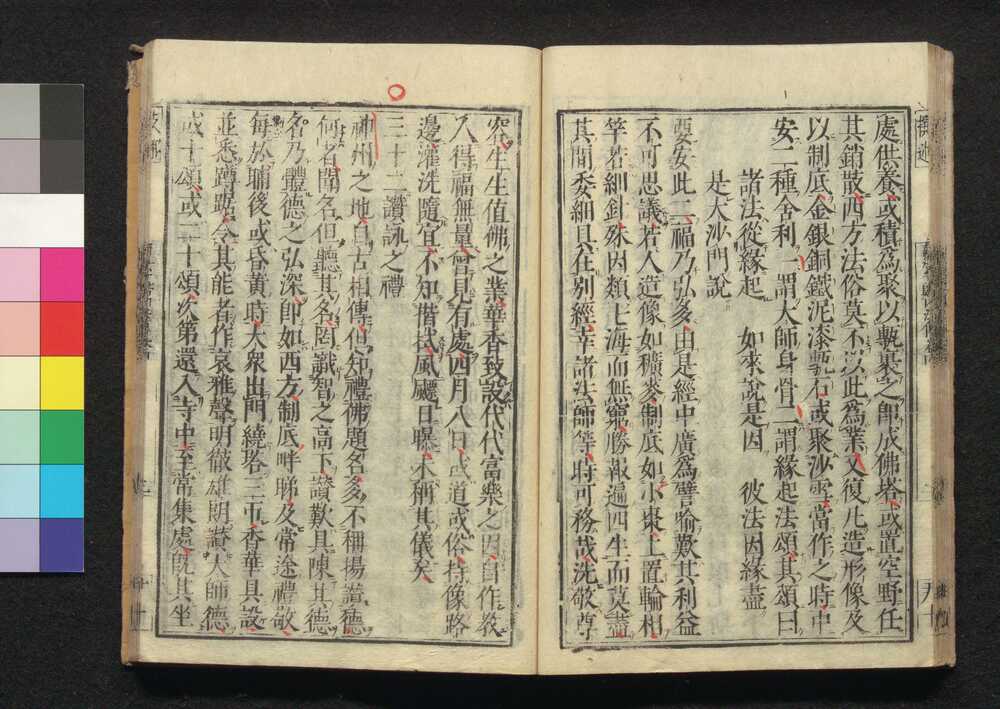 處供養或積爲聚以甎裹之即成佛塔或置空野任
其銷散西方法俗莫不以此爲業又復凡造形像及
以制底金銀銅鐵泥漆甎石或聚沙雪當作之時中
安二種舍利一謂大師身骨二謂緣起法頌其頌曰
諸法從緣起　如來說是因　彼法因緣盡
是大沙門說
要安此二福乃弘多由是經中廣爲譬喻歎其利益
不可思議若人造像如穬麥制底如小棗上置輪相
竿若細針殊因類七海而無窮勝報遍四生而莫盡
其間委細具在別經幸諸法師等時可務哉洗敬尊
容生生值佛之業華香致設代代富樂之因自作教
人得福無量曾見有處四月八日或道或俗持像路
邊灌洗隨宜不知揩拭風飄日曝未稱其儀矣
三十二讚詠之禮
神州之地自古相傳但知禮佛題名多不稱揚讚德
何者聞名但聽其名罔識智之高下讚歎具陳其德
名乃體德之弘深即如西方制底畔睇及常途禮敬
每於晡後或昏黃時大衆出門繞塔三帀香華具設
並悉蹲踞令其能者作哀雅聲明徹雄朗讚大師德
或十頌或二十頌次第還入寺中至常集處既其坐